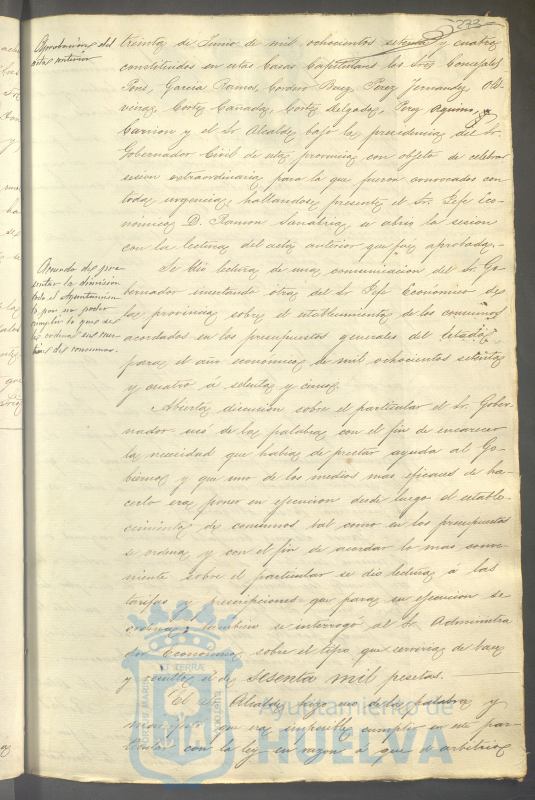 273
Aprobacion del
acta anterior
treinta de Junio de mil ochocientos setenta y cuatro
constituidos en estas Casas Capitulares los Sres Concejales
Pons, Garcia Ramos, Cordero Buez, Perez Fernandez, Oli-
veira, Cortes Cañada, Cortes Delgado, Perez Aquino,
Carrion y el Sr. Alcalde bajo la presidencia del Sr.
Gobernador Civil de esta provincia con objeto de celebrar
sesion extraordinaria para la que fueron convocados con
toda urgencia, hallandose presente el Sr. Gefe Eco-
nómico D. Ramon Sanabria se abrió la sesion
con la lectura del acta anterior que fué aprobada.
Acuerdo de pre-
sentar la dimision
todo el Ayuntamien-
to por no poder
cumplir lo que se
les ordena en ma-
teria de consumos.
Se dió lectura de una comunicacion del Sr. Go-
bernador insertando otra del Sr. Gefe Económico de
la provincia sobre el establecimiento de los consumos
acordados en los presupuestos generales del Estado
para el año económico de mil ochocientos setenta
y cuatro á setenta y cinco.
Abierta discusion sobre el particular el Sr. Gober-
nador usó de la palabra con el fin de encarecer
la necesidad que habia de prestar ayuda al Go-
bierno y que uno de los medios mas eficaces de ha-
cerlo era poner en ejecucion desde luego el estable-
cimiento de consumos tal como en los presupuestos
se ordena, y con el fin de acordar lo mas conve-
niente sobre el particular se dió lectura á las
tarifas y prescripciones que para su ejecucion se
ordena; tambien se interrogó al Sr. Administra
dor Económico sobre el tipo que serviria de base
y resultó el de sesenta mil pesetas.
El Sr. Alcalde hizo uso de la palabra y
manifestó que era imposible cumplir en este par-
ticular con la ley en razon á que el arbitrio
Ayuntamiento de
HUELVA